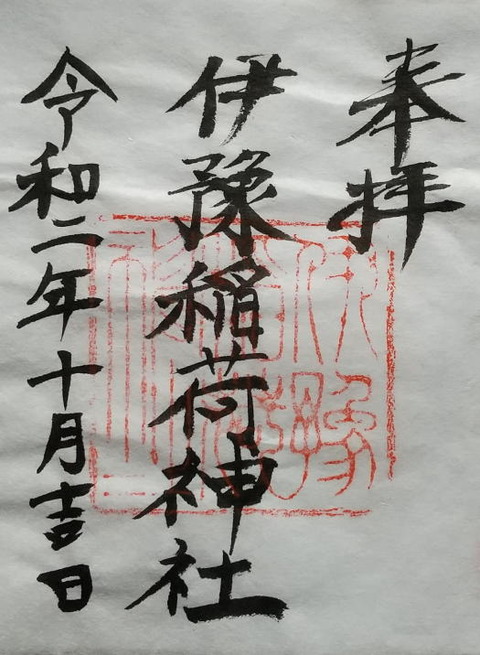 奉拝
伊豫稲荷神社
令和二年十月吉日